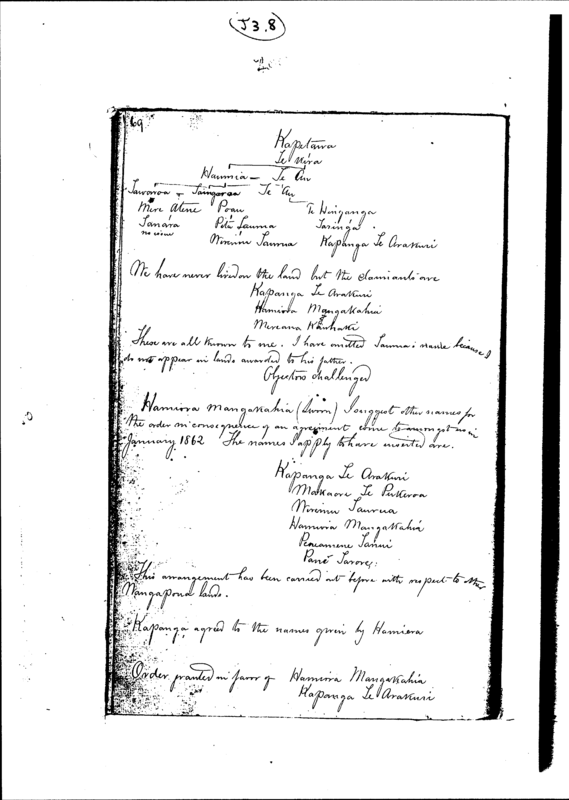 J3.8
69
Kapetawa
Te Mira
Haumia — Te Au
Tawaroa Te Au
Mere Atene Poau Te Wiriganga
Tanára Pita Taurua Taringa
no issue Wirimu Taurua Kapanga Te Arakuri
We have never lived on the land but the claimants are
Kapanga Te Arakuri
Hamiora Mangakahia
Mereana
These are all known to me. I have omitted Taurua's name because I
do not appear in lands awarded to his father.
Objectors challenged
Hamiora Mangakahia (Sworn) I suggest other names for
the order in consequence of an agreement come to amongst us in
January 1862 The names I apply to have inserted are.
Kapanga Te Arakuri
Makaore Te Pukeroa
Wirimu Taurua
Hamiora Mangakahia
Tanui
This arrangement has been carried out before with respect to other
Wangapoua lands.
Kapanga agreed to the names given by Hamiora
Order granted in favor of Hamiora Mangakahia
Kapanga Te Arakuri